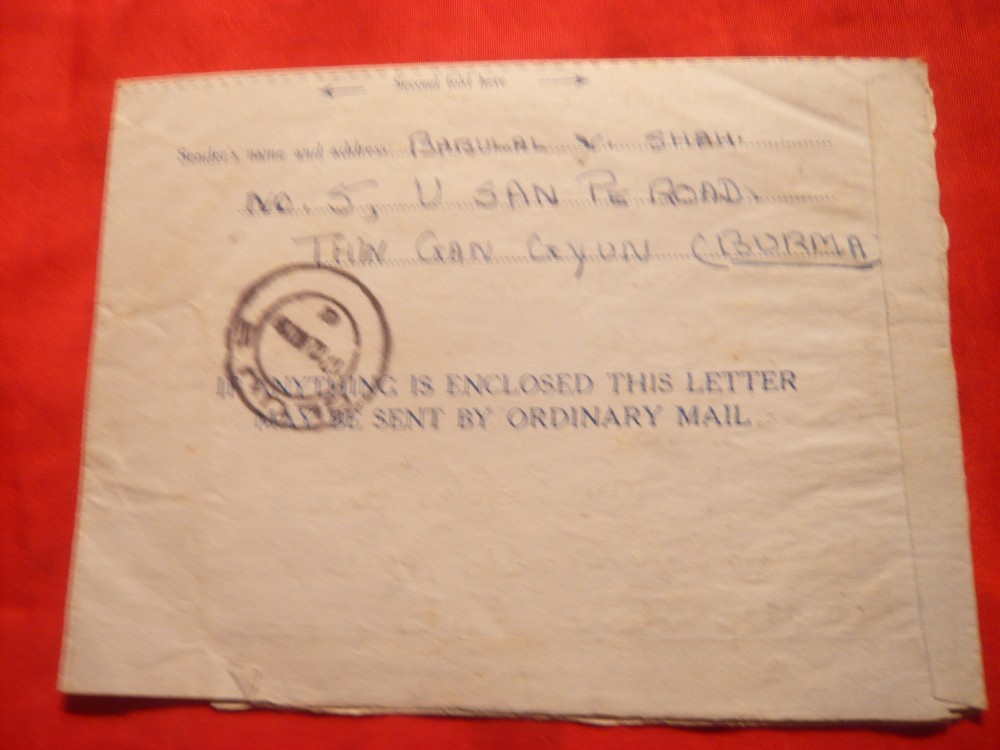 Second fold here
Sender's name and address BABULAL V. SHAH.
No. 5, U SAN PE ROAD.
THIN GAN GYUN (BURMA)
IF ANYTHING IS ENCLOSED THIS LETTER
MAY BE SENT BY ORDINARY MAIL